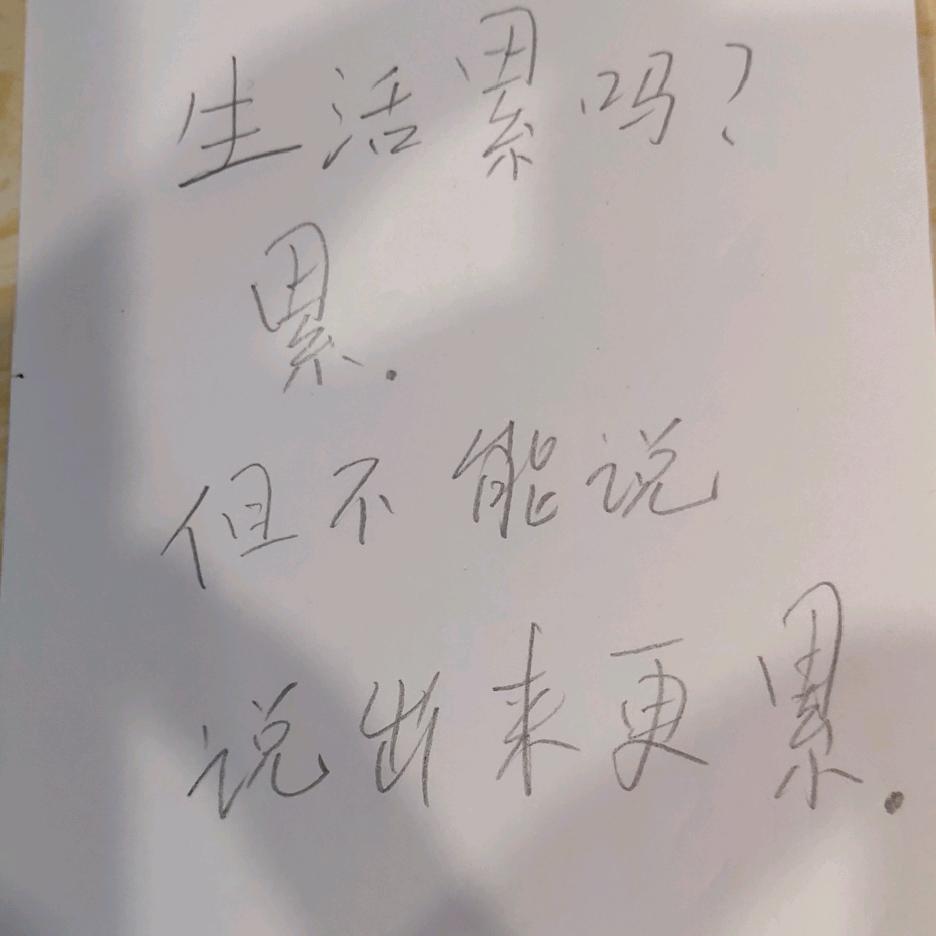 生活累吗?
累.
但不能说
说出来更累.